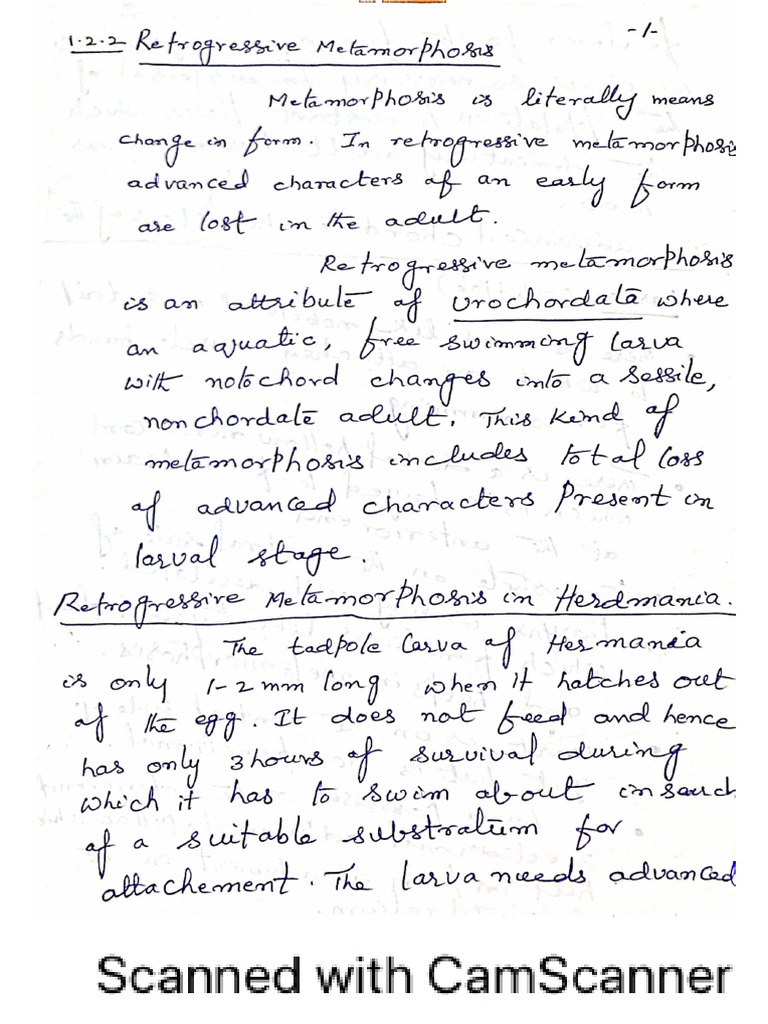 -1-
1.2.2 Retrogressive Metamorphosis
Metamorphosis is literally means
change in form. In retrogressive metamorphosis
advanced characters of an early form
are lost in the adult.
Retrogressive metamorphosis
is an attribute of Urochordata where
an aquatic, free swimming larva
with notochord changes into a sessile,
nonchordate adult. This kind of
metamorphosis includes total loss
of advanced characters Present in
larval stage.
Retrogressive Metamorphosis in Herdmania.
The tadpole larva of Hesmania
is only 1-2 mm long when it hatches out
of the egg. It does not feed and hence
has only 3 hours of survival during
which it has to swim about in search
of a suitable substratum for
attachement. The larva needs advanced
Scanned with CamScanner